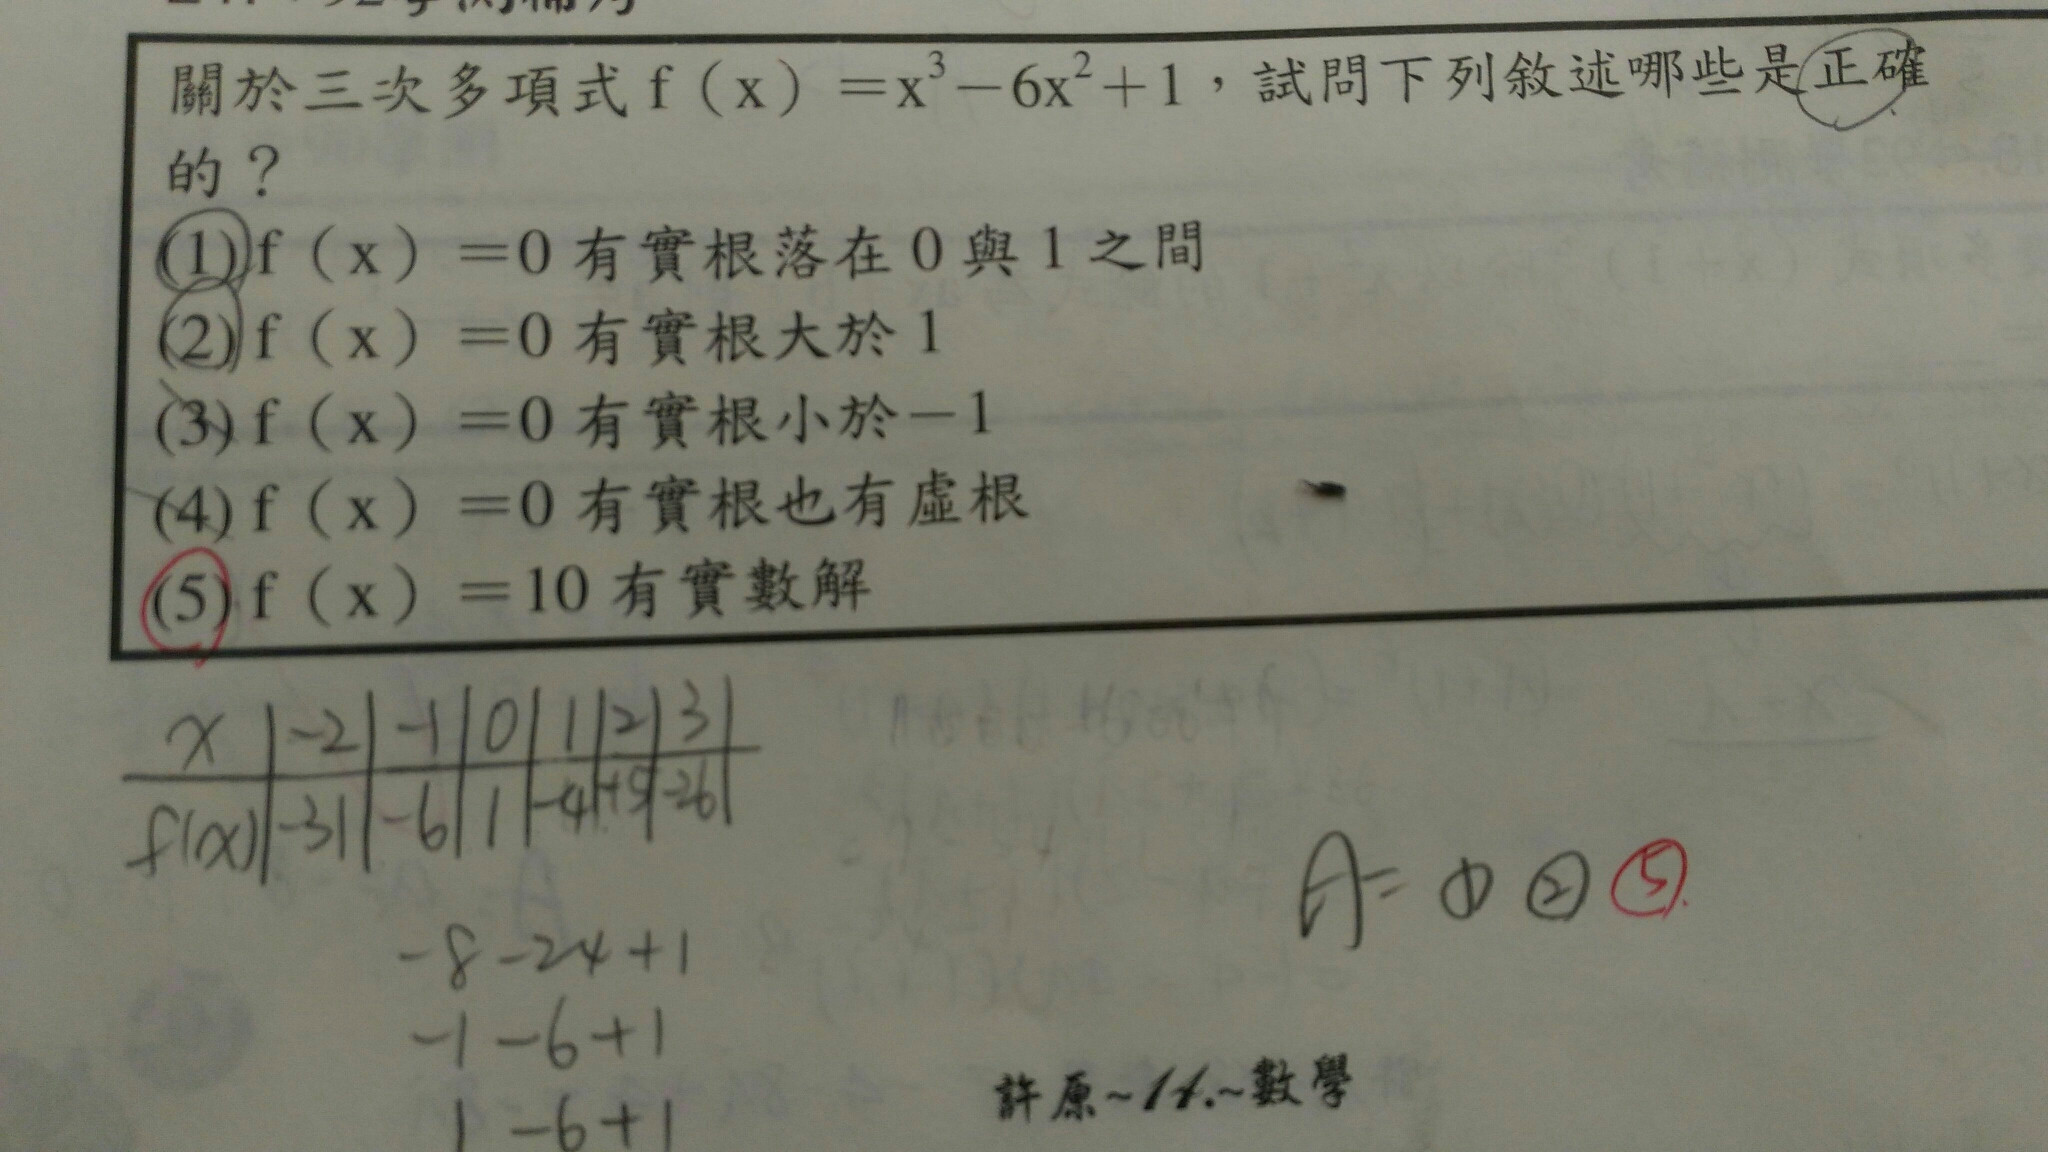 關於三次多項式 f（x）＝x³－6x²＋1，試問下列敘述哪些是正確
的？
(1) f（x）＝0 有實根落在 0 與 1 之間
(2) f（x）＝0 有實根大於 1
(3) f（x）＝0 有實根小於－1
(4) f（x）＝0 有實根也有虛根
(5) f（x）＝10 有實數解
x | -2 | -1 | 0 | 1 | 2 | 3 |
f(x) | -31 | -6 | 1 | -4 | +5 | -26 |
A= ① ② ⑤
-8 -24 +1
-1 -6 +1
1 -6 +1
許原~14.~數學